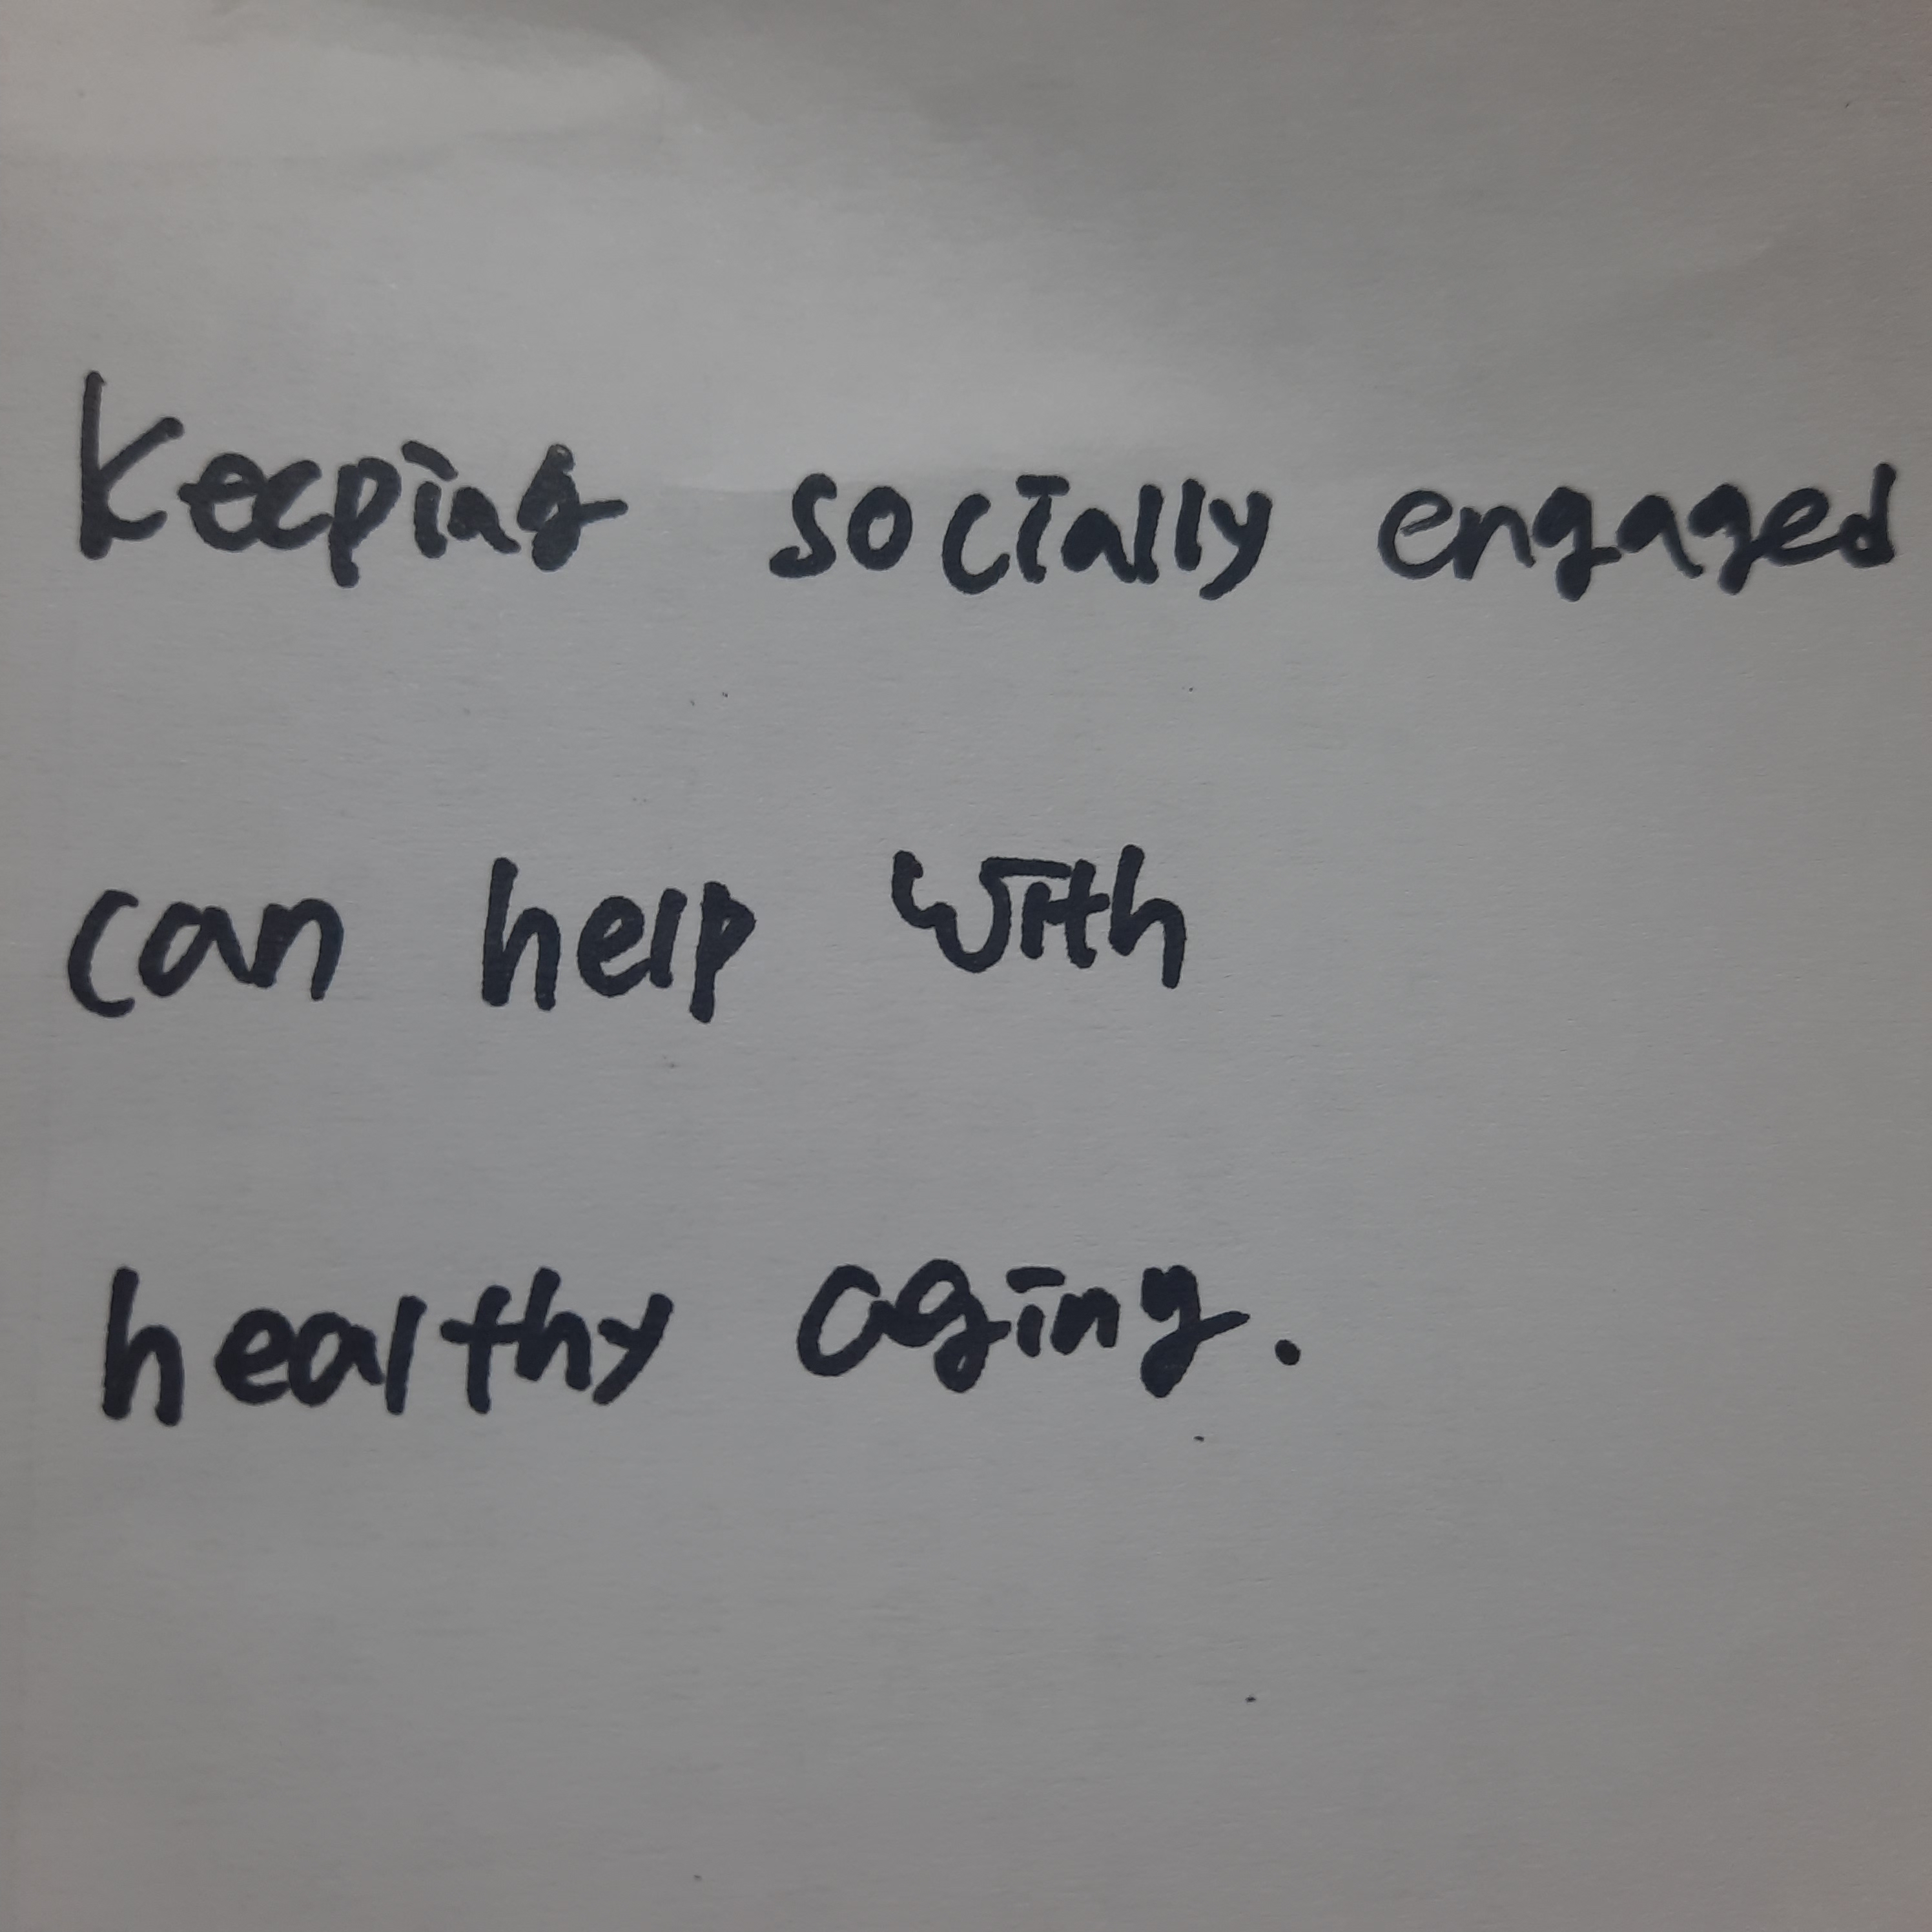 Keeping socially engaged
can help with
healthy aging.